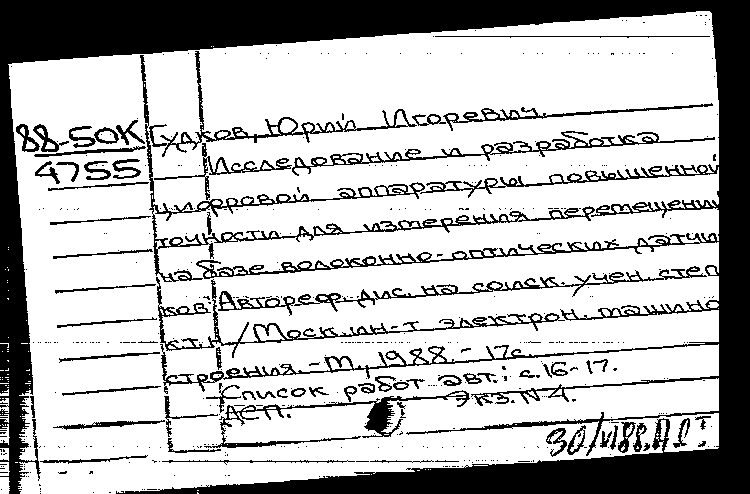 88-50К
4755
Гудков, Юрий Игоревич.
Исследование и разработка
цифровой аппаратуры повышенной
точности для измерения перемещений
на базе волоконно-оптических датчи-
ков: Автореф. дис. на соиск. учен. степ.
к.т.н / Моск. ин-т электрон. машино-
строения. - М., 1988. - 17с.
Список работ авт.: с. 16-17.
ДСП. Экз. N 4.